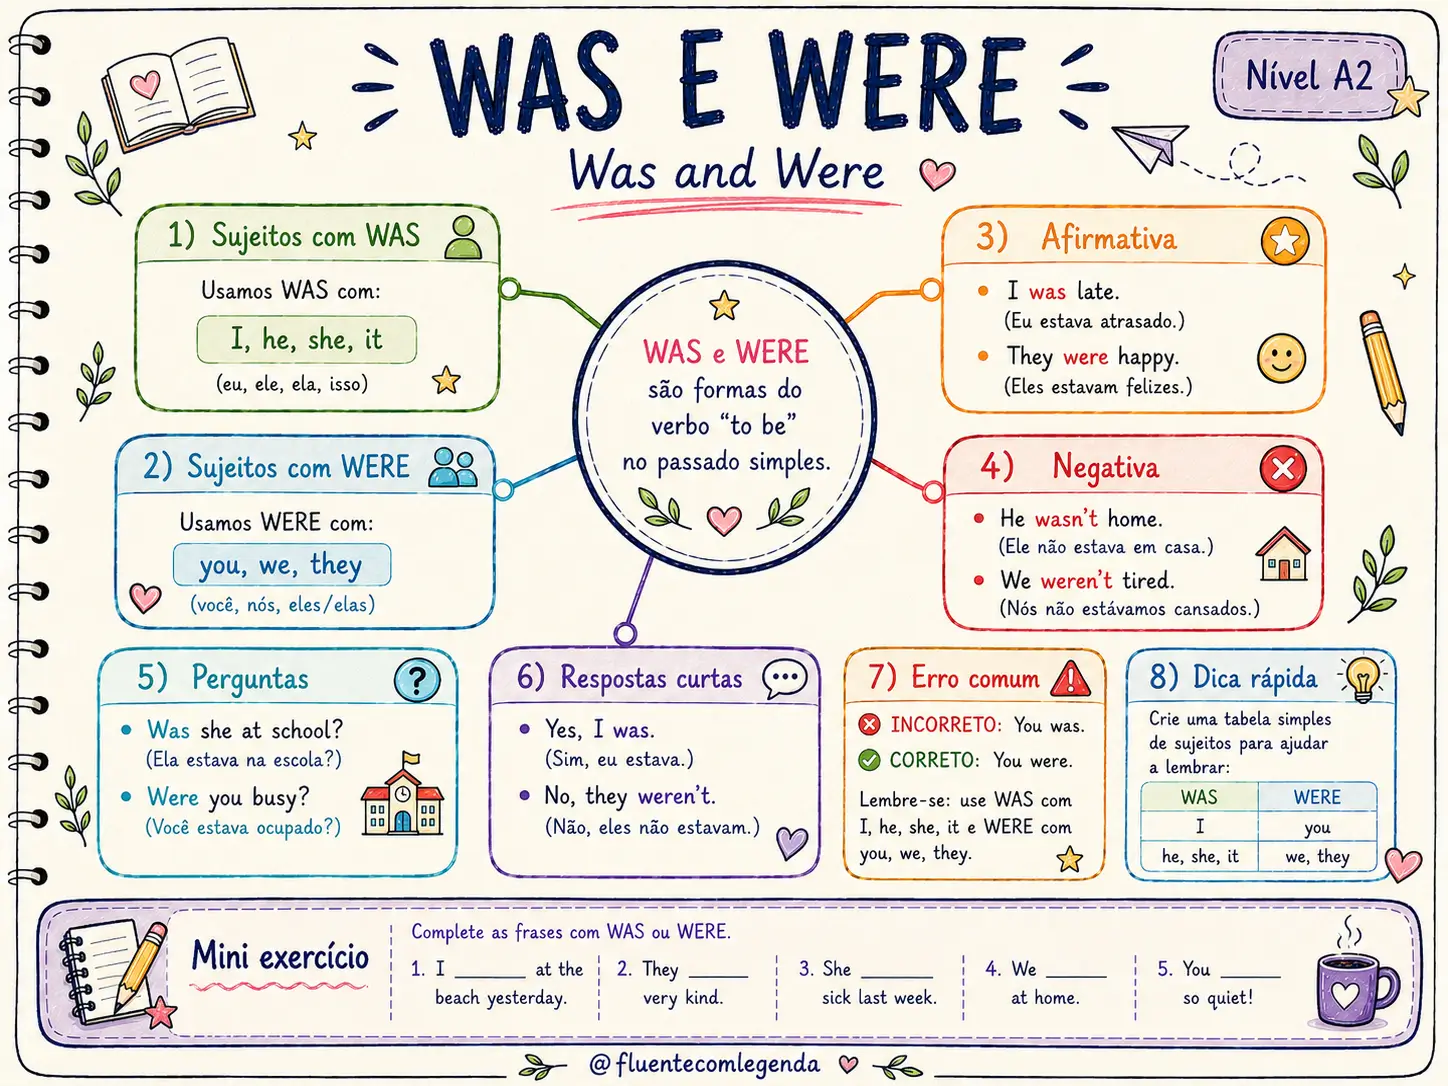 WAS E WERE
Was and Were
Nível A2
1) Sujeitos com WAS
Usamos WAS com:
I, he, she, it
(eu, ele, ela, isso)
2) Sujeitos com WERE
Usamos WERE com:
you, we, they
(você, nós, eles/elas)
WAS e WERE
são formas do
verbo “to be”
no passado simples.
3) Afirmativa
• I was late.
(Eu estava atrasado.)
• They were happy.
(Eles estavam felizes.)
4) Negativa
• He wasn't home.
(Ele não estava em casa.)
• We weren't tired.
(Nós não estávamos cansados.)
5) Perguntas
• Was she at school?
(Ela estava na escola?)
• Were you busy?
(Você estava ocupado?)
6) Respostas curtas
• Yes, I was.
(Sim, eu estava.)
• No, they weren't.
(Não, eles não estavam.)
7) Erro comum
INCORRETO: You was.
CORRETO: You were.
Lembre-se: use WAS com
I, he, she, it e WERE com
you, we, they.
8) Dica rápida
Crie uma tabela simples
de sujeitos para ajudar
a lembrar:
WAS WERE
I you
he, she, it we, they
Mini exercício
Complete as frases com WAS ou WERE.
1. I _______ at the
beach yesterday.
2. They ______
very kind.
3. She _______
sick last week.
4. We ______
at home.
5. You ______
so quiet!
@fluentecomlegenda